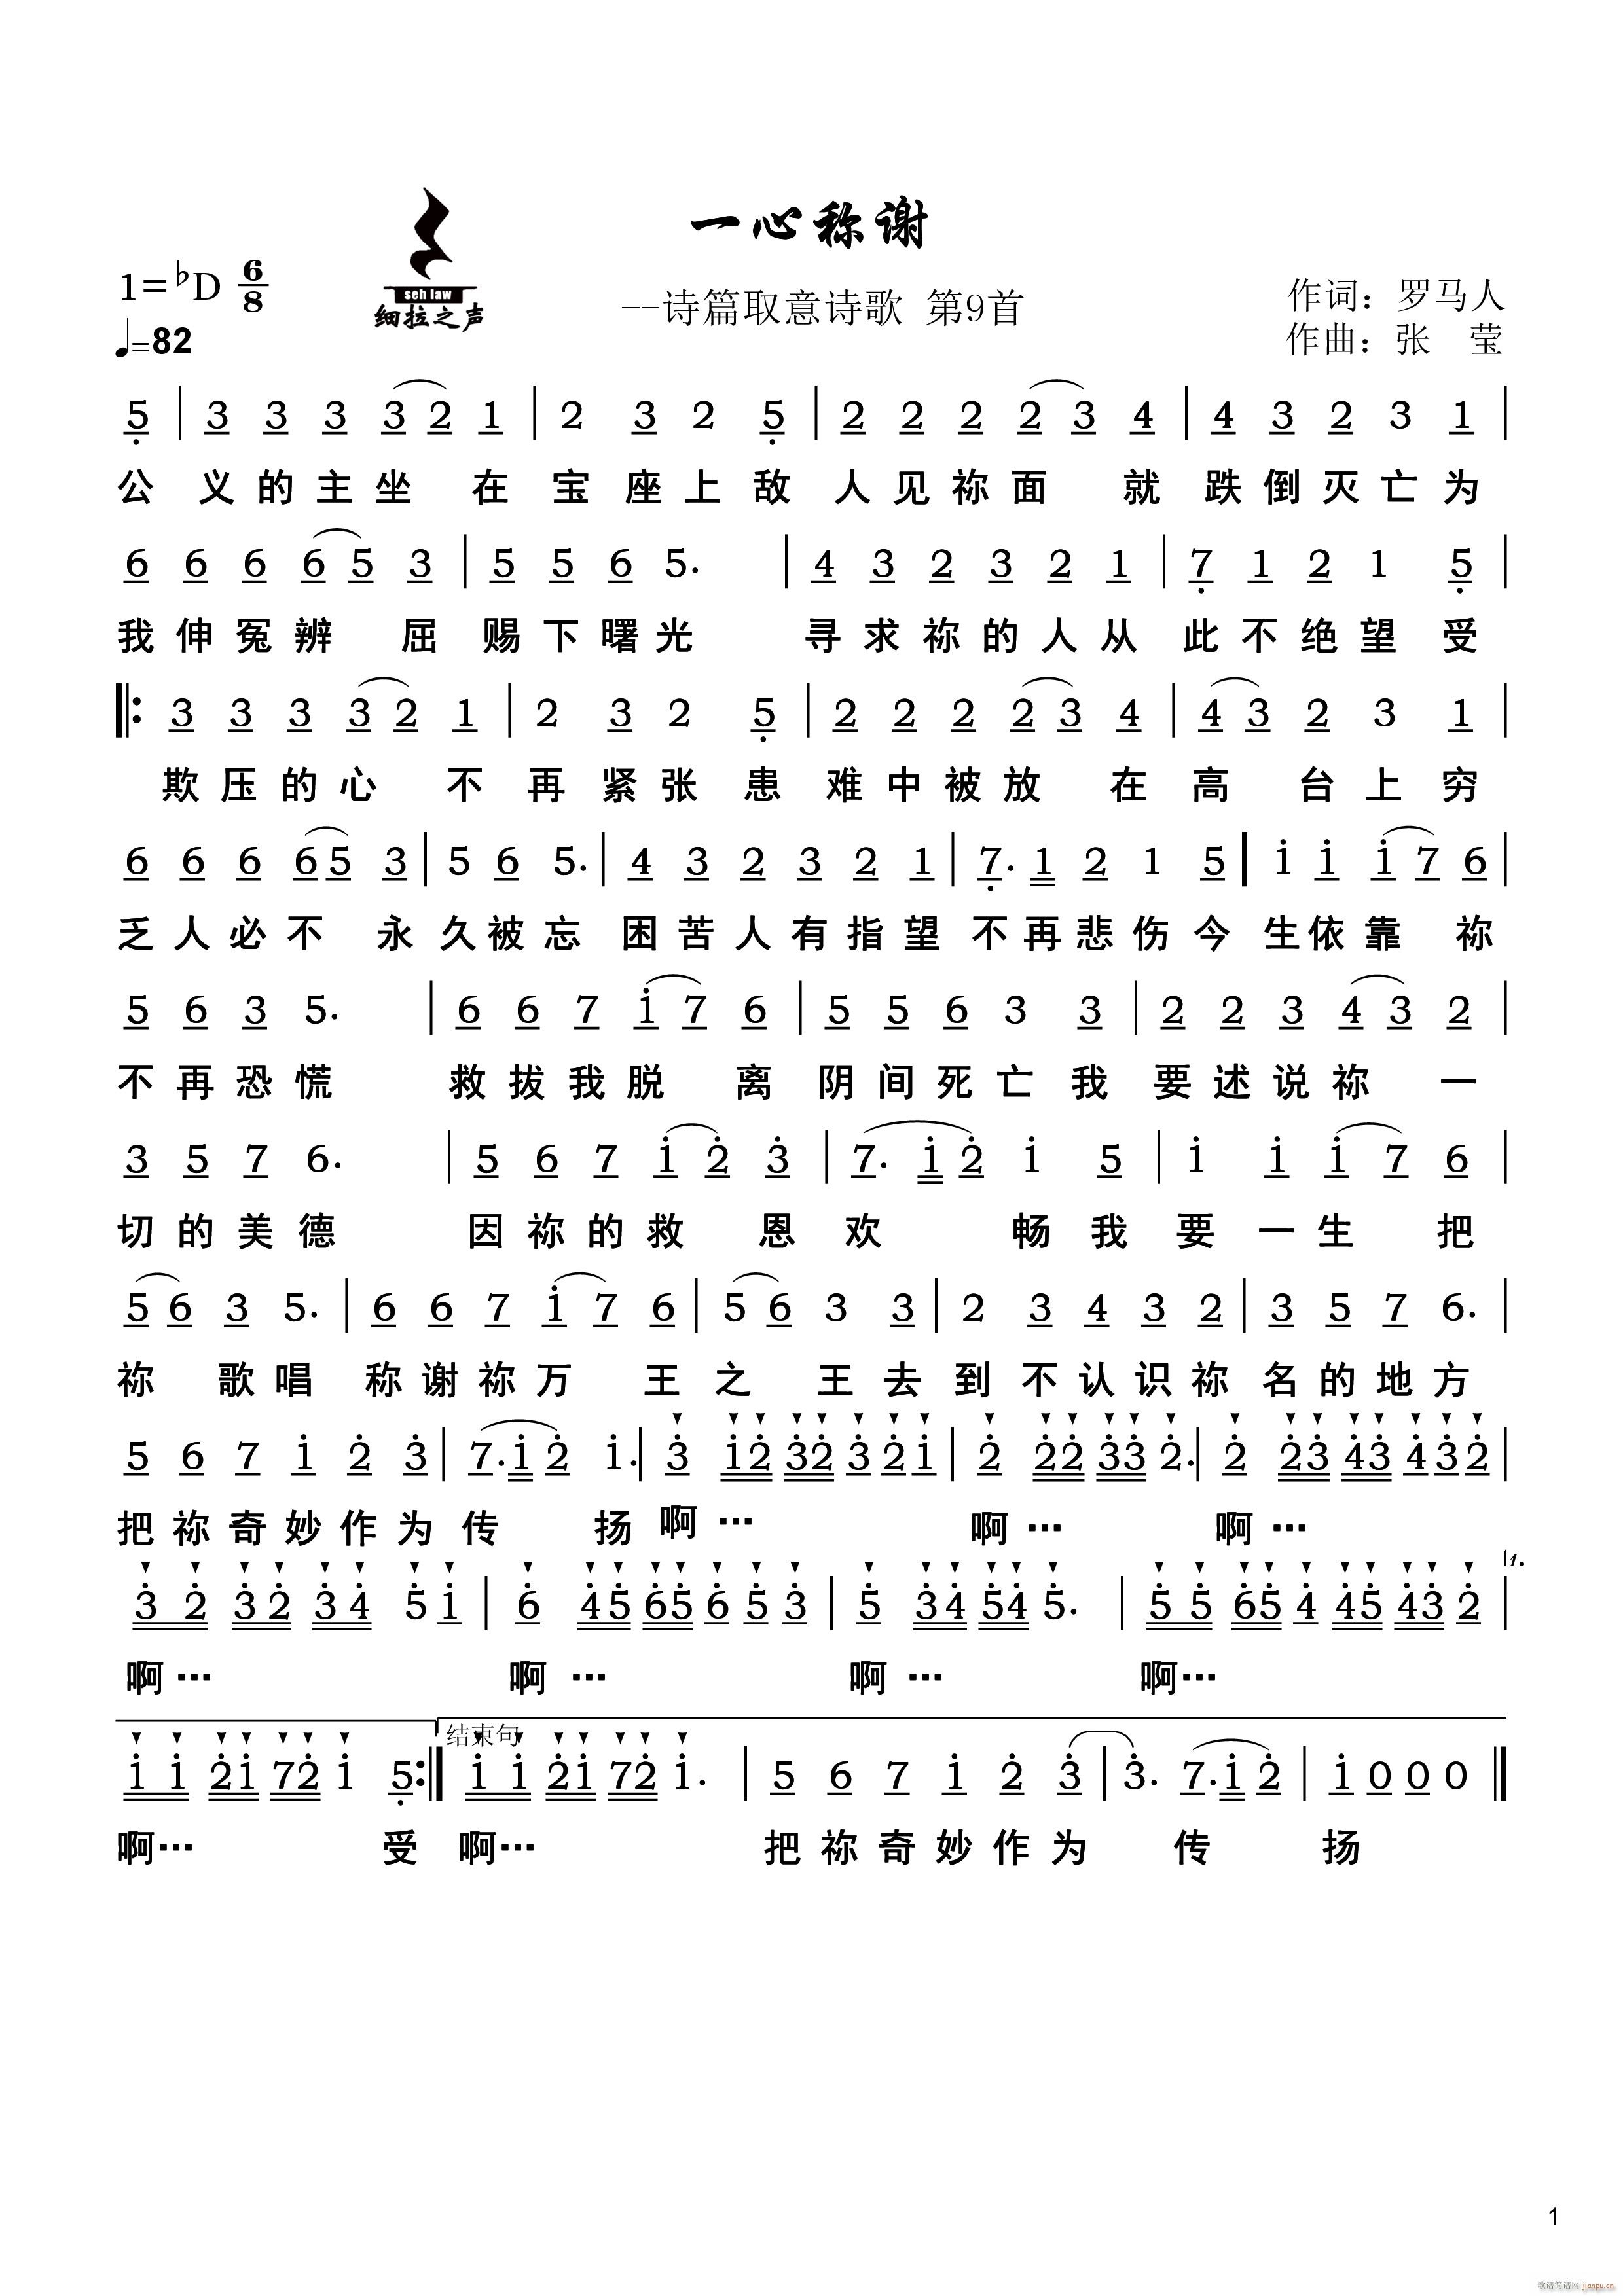 一心称谢
1=♭D 6/8
seh law
细拉之声
--诗篇取意诗歌 第9首
作词：罗马人
♩=82
作曲：张 莹
5̣ | 3 3 3 3 2 1 | 2 3 2 5̣ | 2 2 2 2 3 4 | 4 3 2 3 1 |
公 义的主坐 在 宝座上敌 人见祢面 就 跌倒灭亡为
6 6 6 6 5 3 | 5 5 6 5. | 4 3 2 3 2 1 | 7̣ 1 2 1 5̣ |
我伸冤辨 屈 赐下曙光 寻求祢的人从 此不绝望 受
|: 3 3 3 3 2 1 | 2 3 2 5̣ | 2 2 2 2 3 4 | 4 3 2 3 1 |
欺压的心 不 再紧张患 难中被放 在高 台上穷
6 6 6 6 5 3 | 5 6 5. | 4 3 2 3 2 1 | 7̣. 1 2 1 5 | i i i 7 6 |
乏人必不 永 久被忘 困苦人有指望 不再悲伤今 生依靠 祢
5 6 3 5. | 6 6 7 i 7 6 | 5 5 6 3 3 | 2 2 3 4 3 2 |
不再恐慌 救拔我脱 离 阴间死亡我 要述说祢 一
3 5 7 6. | 5 6 7 i 2̇ 3̇ | 7. i 2̇ i 5 | i i i 7 6 |
切的美德 因祢的救 恩 欢 畅我 要一生 把
5 6 3 5. | 6 6 7 i 7 6 | 5 6 3 3 | 2 3 4 3 2 | 3 5 7 6. |
祢 歌唱 称谢祢万 王 之 王去 到不认识祢 名的地方
5 6 7 i 2̇ 3̇ | 7. i 2̇ i. | 3̇ i2̇ 3̇2̇ 3̇ 2̇ i | 2̇ 2̇2̇ 3̇3̇ 2̇. | 2̇ 2̇3̇ 4̇3̇ 4̇ 3̇ 2̇ |
把祢奇妙作为 传 扬 啊… 啊… 啊…
3̇ 2̇ 3̇2̇ 3̇4̇ 5̇ i | 6̇ 4̇5̇ 6̇5̇ 6̇ 5̇ 3̇ | 5̇ 3̇4̇ 5̇4̇ 5̇. | 5̇ 5̇ 6̇5̇ 4̇ 4̇5̇ 4̇3̇ 2̇ | 1.
啊… 啊… 啊… 啊…
结束句
i i 2̇i 72̇ i 5̣ :| i i 2̇i 72̇ i. | 5 6 7 i 2̇ 3̇ | 3̇. 7. i 2̇ | i 0 0 0 ‖
啊… 受 啊… 把祢奇妙作为 传 扬
1
歌谱简谱网 jianpu.cn